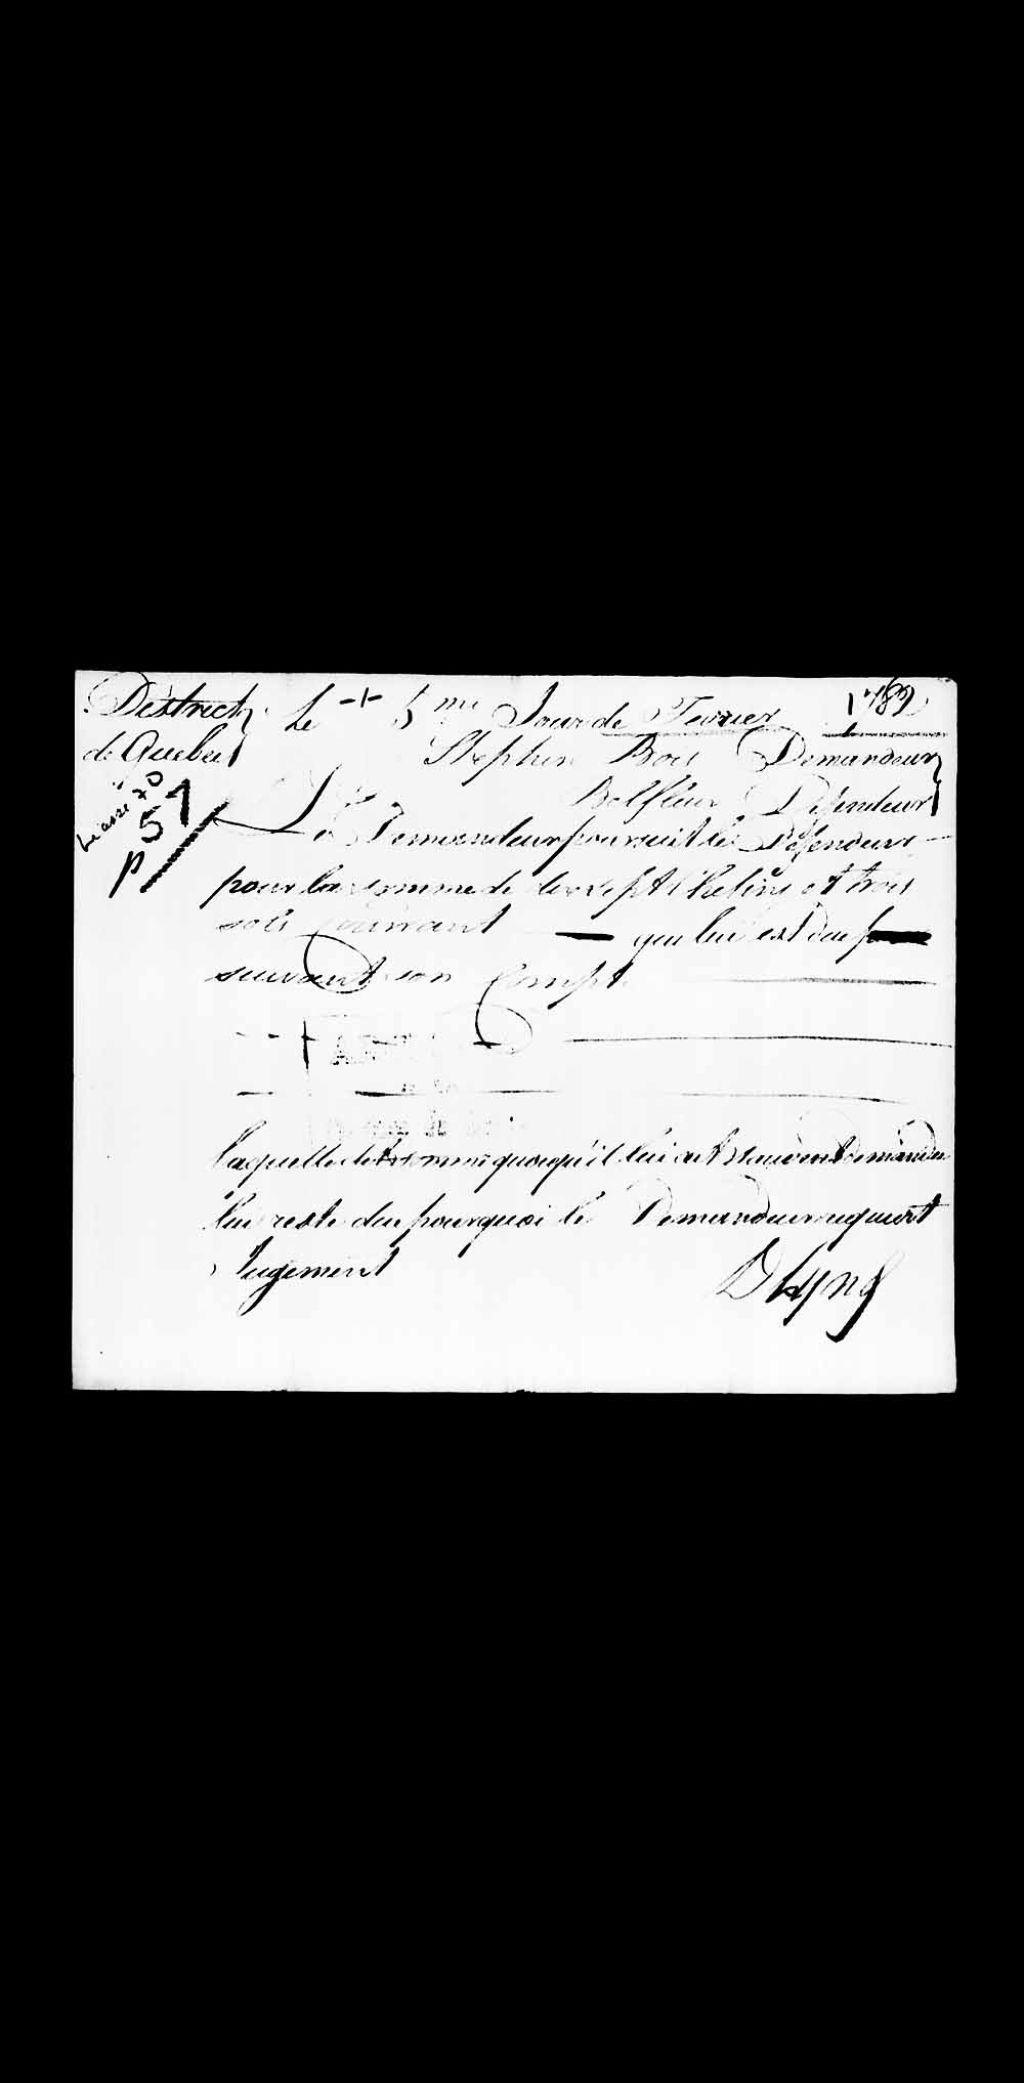 District Le 5me Jour de Fevrier 1789
de Quebec Stephen Bois Demandeur
Belfleur Defendeur
Liasse 70
57
P
Le Demandeur poursuit le Defendeur
pour la somme de dixsept Chelins et trois
sols courrant que lui est due
suivant son Compt
laquelle dite somme quoiqu'il lui ait souvent demandée
lui reste due pourquoi le Demandeur requiert
Jugement
D Lynd